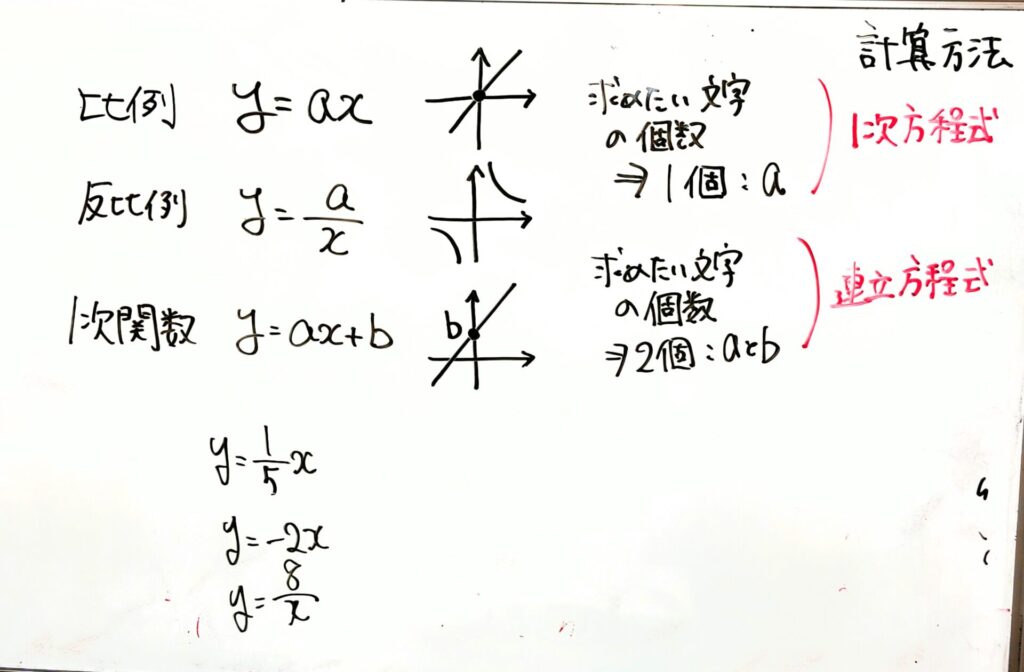 計算方法
比例 y=ax
求めたい文字
の個数
⇒1個:a
1次方程式
反比例 y=a/x
1次関数 y=ax+b
b
求めたい文字
の個数
⇒2個:aとb
連立方程式
y=1/5x
y=-2x
y=8/x